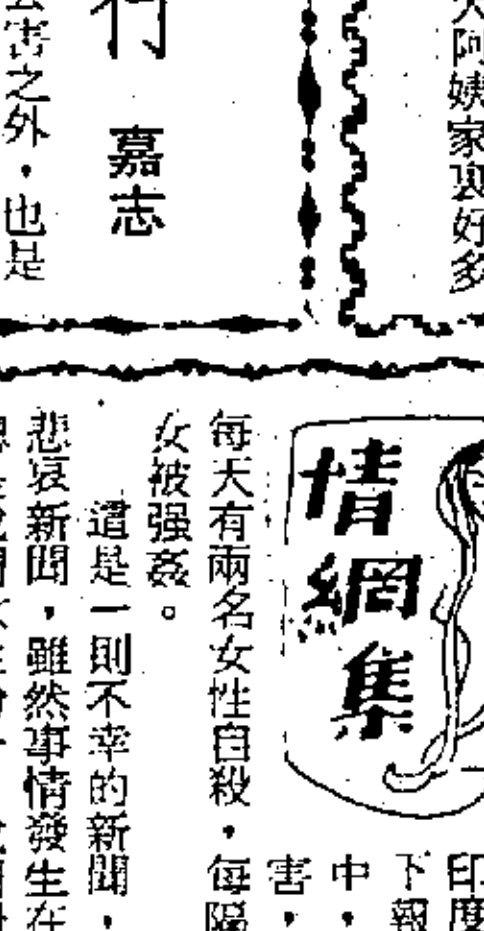 大阿姨家裏好多
嘉志
公害之外，也是
情網集
印度
下報
中，
害，
每天有兩名女性自殺，每隔
女被强姦。
這是一則不幸的新聞，
悲哀新聞，雖然事情發生在